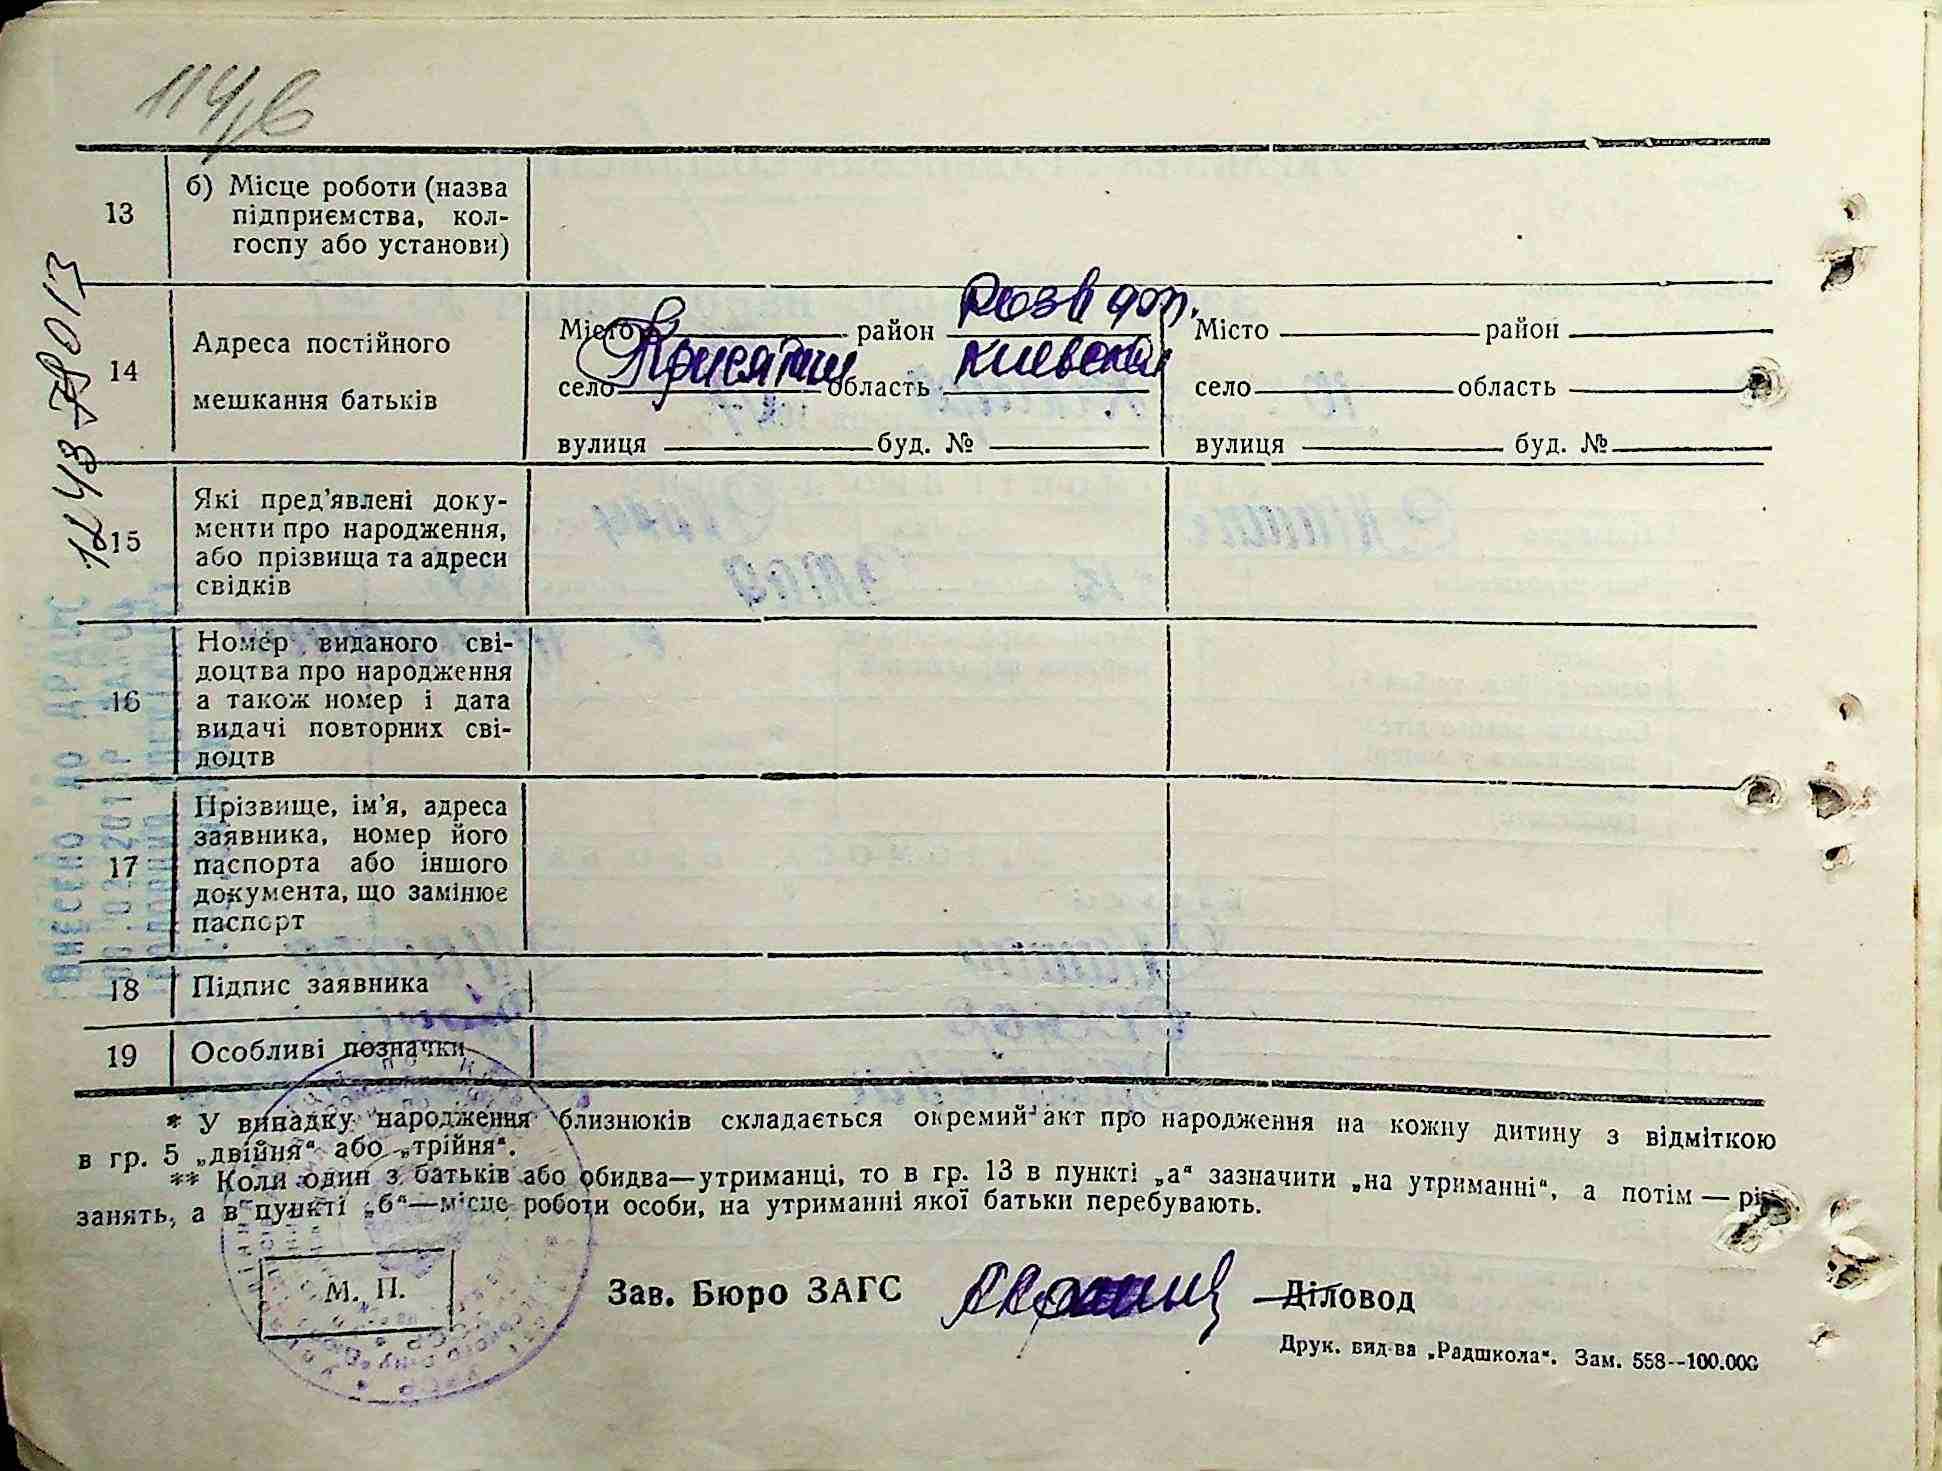 114, в
13
б) Місце роботи (назва
підприємства, кол-
госпу або установи)
14
Адреса постійного
мешкання батьків
Місто район Розв доп.
село область Киевская
вулиця буд. №
Місто район
село область
вулиця буд. №
15
Які пред’явлені доку-
менти про народження,
або прізвища та адреси
свідків
16
Номер виданого сві-
доцтва про народження
а також номер і дата
видачі повторних сві-
доцтв
17
Прізвище, ім’я, адреса
заявника, номер його
паспорта або іншого
документа, що замінює
паспорт
18
Підпис заявника
19
Особливі позначки
* У випадку народження близнюків складається окремий акт про народження на кожну дитину з відміткою
в гр. 5 „двійня“ або „трійня“.
** Коли один з батьків або обидва—утриманці, то в гр. 13 в пункті „а“ зазначити „на утриманні“, а потім — рід
занять, а в пункті „б“—місце роботи особи, на утриманні якої батьки перебувають.
М. П.
Зав. Бюро ЗАГС
Діловод
Друк. вид-ва „Радшкола“. Зам. 558--100.000
ВНЕСЕНО ДО ДРАЦС